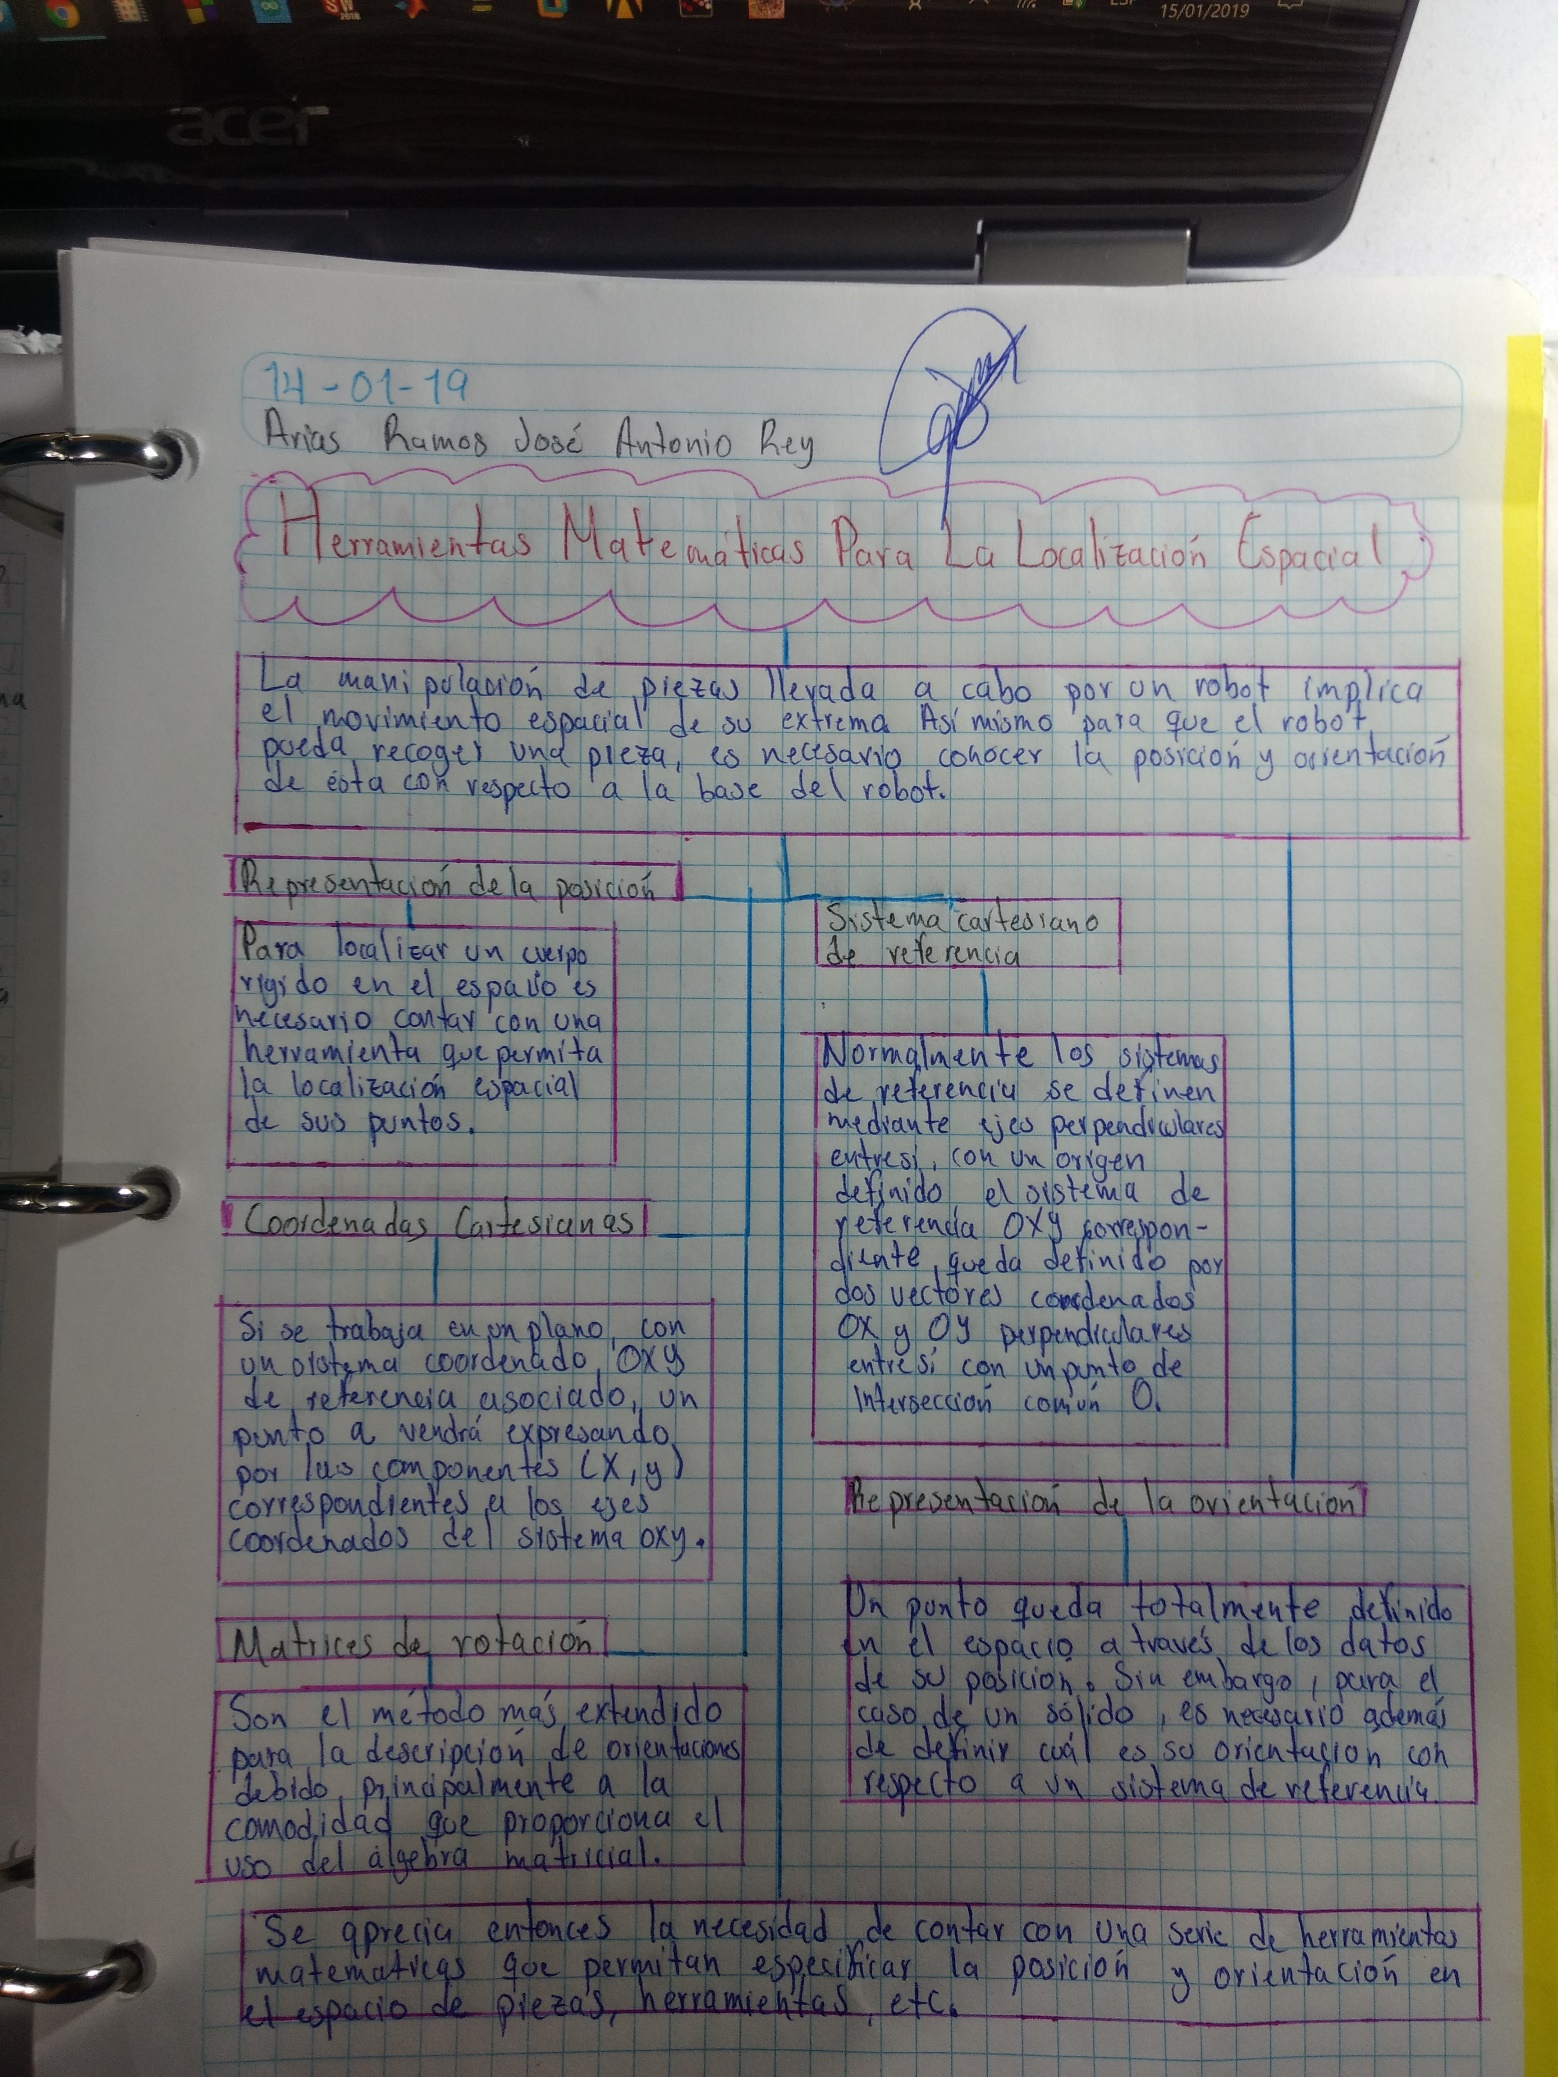 15/01/2019
acer
14-01-19
Arias Ramos José Antonio Rey
Herramientas Matemáticas Para La Localización Espacial
La manipulación de piezas llevada a cabo por un robot implica
el movimiento espacial de su extrema. Así mismo para que el robot
pueda recoger una pieza, es necesario conocer la posición y orientación
de ésta con respecto a la base del robot.
Representación de la posición
Para localizar un cuerpo
rígido en el espacio es
necesario contar con una
herramienta que permita
la localización espacial
de sus puntos.
Sistema cartesiano
de referencia
Normalmente los sistemas
de referencia se definen
mediante ejes perpendiculares
entresí, con un origen
definido el sistema de
referencia OXY correspon-
diente, queda definido por
dos vectores coordenados
OX y OY perpendiculares
entresí con un punto de
Intersección común O.
Coordenadas Cartesianas
Si se trabaja en un plano, con
un sistema coordenado OXY
de referencia asociado, un
punto a vendrá expresando
por las componentes (X, y)
correspondientes a los ejes
coordenados del sistema oxy.
Representación de la orientación
Un punto queda totalmente definido
en el espacio a través de los datos
de su posición. Sin embargo, para el
caso de un sólido, es necesario además
de definir cuál es su orientación con
respecto a un sistema de referencia
Matrices de rotación
Son el método más extendido
para la descripción de orientaciones
debido, principalmente a la
comodidad que proporciona el
uso del álgebra matricial.
Se aprecia entonces la necesidad de contar con una serie de herramientas
matemáticas que permitan especificar la posición y orientación en
el espacio de piezas, herramientas, etc.